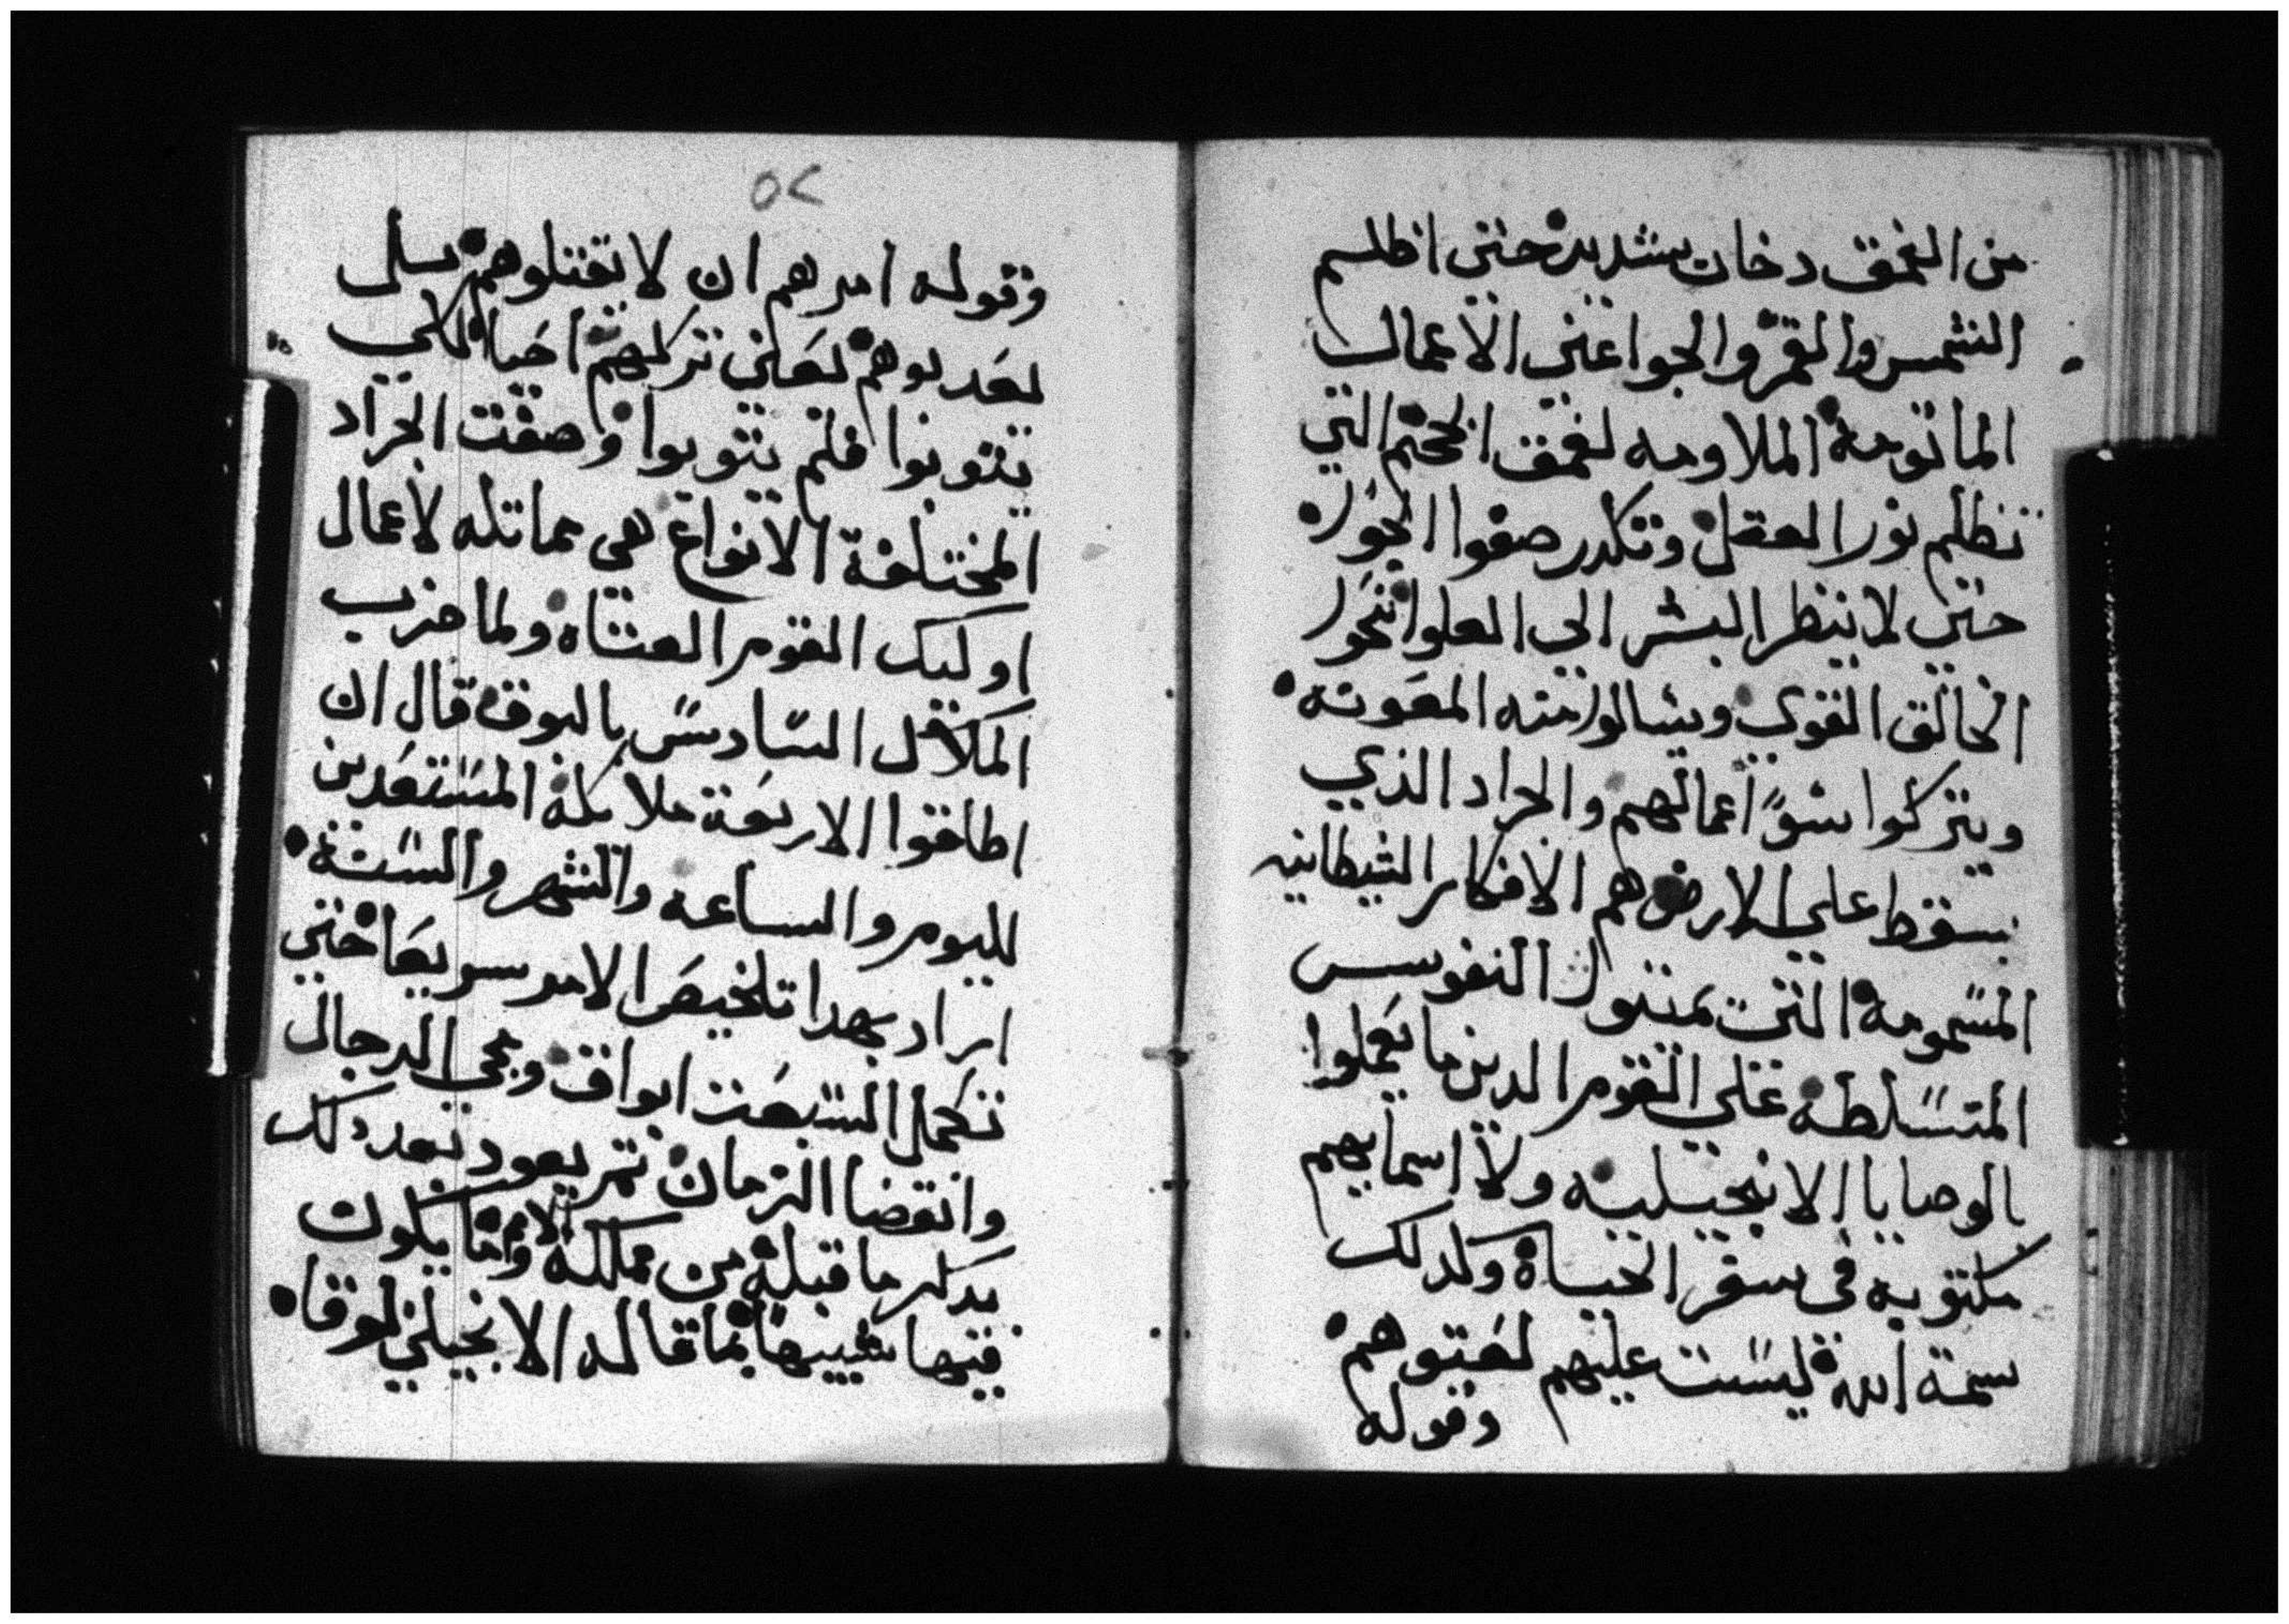 من العمق دخان شديد حتى اظلم
الشمس والقمر والجو اعني الاعمال
الماثومة الملاومه لعمق الجحيم التي
تظلم نور العقل وتكدر صفوا الجو
حتى لا ينظر البشر الي العلوا نحو
الخالق القوي ويسالوا منه المعونه
ويتركوا سو اعمالهم والجراد الذي
يسقط علي الارض هم الافكار الشيطانيه
المسمومة التي تميتوا النفوس
المتسلطه علي القوم الدين ما يعملوا
بالوصايا الانجيليه ولا اسمايهم
مكتوبه في سفر الحياة وكدلك
سمة الله ليست عليهم لعتوهم
وقوله
٥٢
وقوله امرهم ان لا يقتلوهم بل
يعدبوهم يعني تركهم احيا لكي
يتوبوا فلم يتوبوا وصفت الجراد
المختلفة الانواع هي مماتله لاعمال
اوليك القوم العتاه ولما ضرب
الملاك السادس بالبوق قال ان
اطلقوا الاربعة ملايكة المستعدين
لليوم والساعه والشهر والسنة
اراد بهدا تلخيص الامر سريعا حتى
تكمل السبعت ابواق ويجي الدجال
وانقضا الزمان تم يعود بعد دلك
يدكر ما قبله من مملكة الامم وما يكون
فيها شبيها بما قاله الانجيلي لوقا